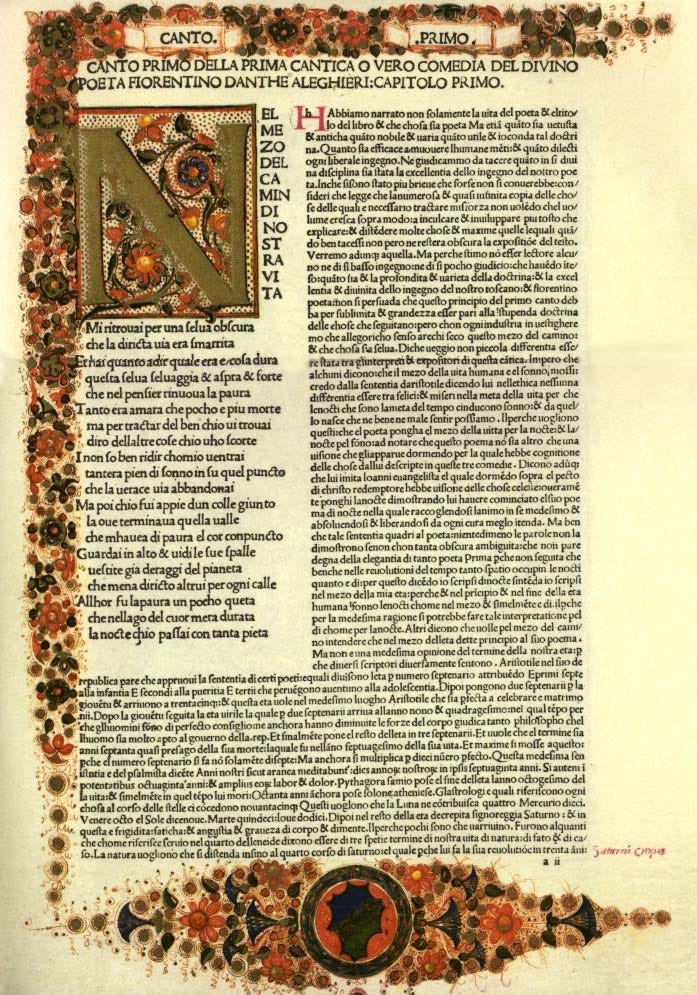 CANTO. PRIMO.
CANTO PRIMO DELLA PRIMA CANTICA O VERO COMEDIA DEL DIVINO
POETA FIORENTINO DANTHE ALEGHIERI: CAPITOLO PRIMO.
NEL
MEZO
DEL
CA
MIN
DI
NO
ST
RA
VI
TA
Mi ritrouai per una selua obscura
che la diricta uia era smarrita
Et hai quanto adir quale era e cosa dura
questa selua seluaggia & aspra & forte
che nel pensier rinuoua la paura
Tanto era amara che pocho e piu morte
ma per tractar del ben chio ui trouai
diro dellaltre cose chio uho scorte
I non so ben ridir chomio uentrai
tantera pien di sonno in su quel puncto
che la uerace uia abbandonai
Ma poi chio fui appie dun colle giunto
la oue terminaua quella ualle
che mhauea di paura el cor conpuncto
Guardai in alto & uidi le sue spalle
uestite gia deraggi del pianeta
che mena diricto altrui per ogni calle
Allhor fu lapaura un pocho queta
che nellago del cuor mera durata
la nocte chio passai con tanta pieta
HAbbiamo narrato non solamente la uita del poeta & eltito/
lo del libro & che chosa sia poeta Ma etiā quāto sia uetusta
& anticha quāto nobile & uaria quāto utile & ioconda tal doctri
na. Quanto sia efficace a muouere lhumane mēti: & quāto dilecti
ogni liberale ingegno. Ne giudicammo da tacere quāto in si diui
na disciplina sia stata la excellentia dello ingegno del nostro poe
ta. Inche sisono stato piu brieue che forse non si conuerebbe: con/
sideri che legge che lanumerosa & quasi infinita copia delle cho/
se delle quali e necessario tractare misforza non uolēdo chel uo/
lume cresca sopra modo: a inculcare & inuiluppare piu tosto che
explicare: & distēdere molte chose & maxime quelle lequali quā/
do ben tacessi non pero ne restera obscura la expositiōe del testo.
Verremo adunq; aquella. Ma perche stimo nō esser lectore alcu/
no ne di si basso ingegno: ne di si pocho giudicio: che hauēdo īte/
so: quāto sia & la profondita & uarieta della doctrina: & la excel
lentia & diuinita dello ingegno del nostro toscano: & fiorentino
poeta: non si persuada che questo principio del primo canto deb
ba per sublimita & grandezza esser pari alla stupenda doctrina
delle chose che seguitano: pero chon ogni industria in uestighere
mo che allegoricho senso arechi seco questo mezo del camino:
& che chosa sia selua. Diche ueggio non piccola differentia esse/
re stata tra glinterpreti & expositori di questa cātica. Impero che
alcuni dicono: che il mezo della uita humana e el sonno, mossi:
credo dalla sententia daristotile dicendo lui nellethica nessunna
differentia essere tra felici: & miseri nella meta della uita per che
lenocti che sono lameta del tempo cinducono sonno: & da quel/
lo nasce che ne bene ne male sentir possiamo. Ilperche uogliono
questi: che el poeta pongha el mezo della uitta per la nocte: & la/
nocte pel sōno: ad notare che questo poema nō sia altro che una
uisione che gliapparue dormendo per la quale hebbe cognitione
delle chose dallui descripte in queste tre comedie. Dicono adūq;
che lui imita Ioanni euangelista el quale dormēdo sopra el pecto
di christo redemptore hebbe uisione delle chose celeste: oueramē
te ponghi lanocte dimostrando lui hauere cominciato elsuo poe
ma di nocte nella quale raccogliendosi lanimo in se medesimo &
absoluendosi & liberando si da ogni cura meglo itenda. Ma ben
che tale sententia quadri al poeta: nientedimeno le parole non la
dimostrono senon chon tanta obscura ambiguita: che non pare
degna della elegantia di tanto poeta Prima pche non seguita che
benche nelle reuolutioni del tempo tanto spatio occupin le nocti
quanto e di: per questo dicēdo io scripsi dinocte sintēda io scripsi
nel mezo della mia eta: perche & nel pricipio & nel fine della eta
humana sonno lenocti chome nel mezo & simelmēte e di. ilpche
per la medesima ragione si potrebbe fare tale interpretatione pel
di chome per lanocte. Altri dicono che uolle pel mezo del cami/
no intendere che nel mezo delleta dette principio al suo poema.
Ma non e una medesima opinione del termine della nostra eta: p
che diuersi scriptori diuersamente sentono. Aristotile nel suo de
republica pare che appruoui la sententia di certi poeti: equali diuisono leta p numero septenario attribuēdo Eprimi septe
alla infantia E secondi alla pueritia E tertii che peruēgono auentuno alla adolescentia. Dipoi pongono due septenarii p la
giouētu & arriuono a trentacinq; & questa eta uole nel medesimo luogho Aristotile che sia pfecta a celebrare e matrimo
nii. Dopo la giouētu seguita la eta uirile la quale p due septenarii arriua allanno nono & quadragesimo: nel qual tēpo per
che glhuomini sono di perfecto consiglio: ne anchora hanno diminuite le forze del corpo giudica tanto philosopho chel
lhuomo sia molto apto al gouerno della. rep. Et finalmēte pone el resto delleta in tre septenarii. Et uuole che el termine sia
anni septanta quasi presago della sua morte: laquale fu nellāno septuagesimo della sua uita. Et maxime si mosse aquesto:
pche el numero septenario si fa nō solamēte disepte: Ma anchora si multiplica p dieci nūero pfecto. Questa medesima sen
tentia e del psalmista dicēte Anni nostri sicut aranea meditabunt': dies annoꝝ nostroꝝ in ipsis septuaginta anni. Si autem ī
potentatibus octuaginta anni: & amplius eoꝝ labor & dolor. Pythagora samio pose el fine delleta lanno octogesimo del
la uita: & simelmēte in quel tēpo lui mori: Octanta anni āchora pose solone, atheniese. Glastrologi e quali riferiscono ogni
chosa al corso delle stelle ci cōcedono nouantacinq; Questi uogliono che la Luna ne cōtribuisca quattro Mercurio dieci.
Venere octo el Sole dicenoue. Marte quindeci: Ioue dodici. Dipoi nel resto della eta decrepita signoreggia Saturno: & in
questa e frigidita: saticha: & angustia & graueza di corpo & dimente. Ilperche pochi sono che uarriuino. Furono alquanti
che chome riferisce seruio nel quarto delleneide dixono essere di tre spetie termine di nostra uita di natura: di fato & di ca/
so. La natura uogliono che si distenda insino al quarto corso di saturno: el quale pche lui fa la sua reuolutiōe in trenta āni:
a ii